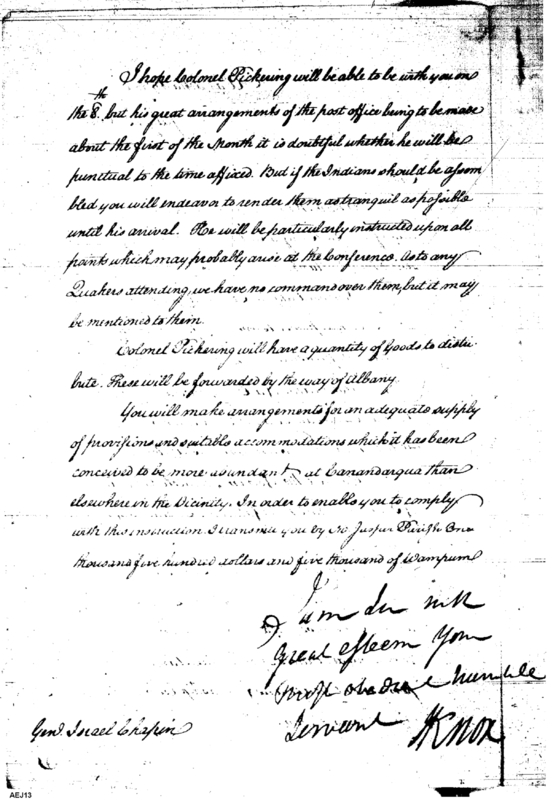 I hope Colonel Pickering will be able to be with you on
the 8th. but his great arrangements of the post office being to be made
about the first of the Month it is doubtful whether he will be
punctual to the time affixed. But if the Indians should be assem
bled you will endeavor to render them as tranquil as possible
until his arrival. He will be particularly instructed upon all
points which may probably arise at the Conference. As to any
Quakers attending, we have no command over them, but it may
be mentioned to them.
Colonel Pickering will have a quantity of Goods to distri-
bute. These will be forwarded by the way of Albany.
You will make arrangements for an adequate supply
of provisions and suitable accommodations which it has been
conceived to be more abundant at Canandarqua than
elsewhere in the Vicinity. In order to enable you to comply
with this instruction I transmit you by Mr Jasper Parish One
thousand five hundred dollars and five thousand of Wampum
I am Sir with
great esteem Your
most obedient humble
Servant HKnox
Genl. Israel Chapin
AEJ13